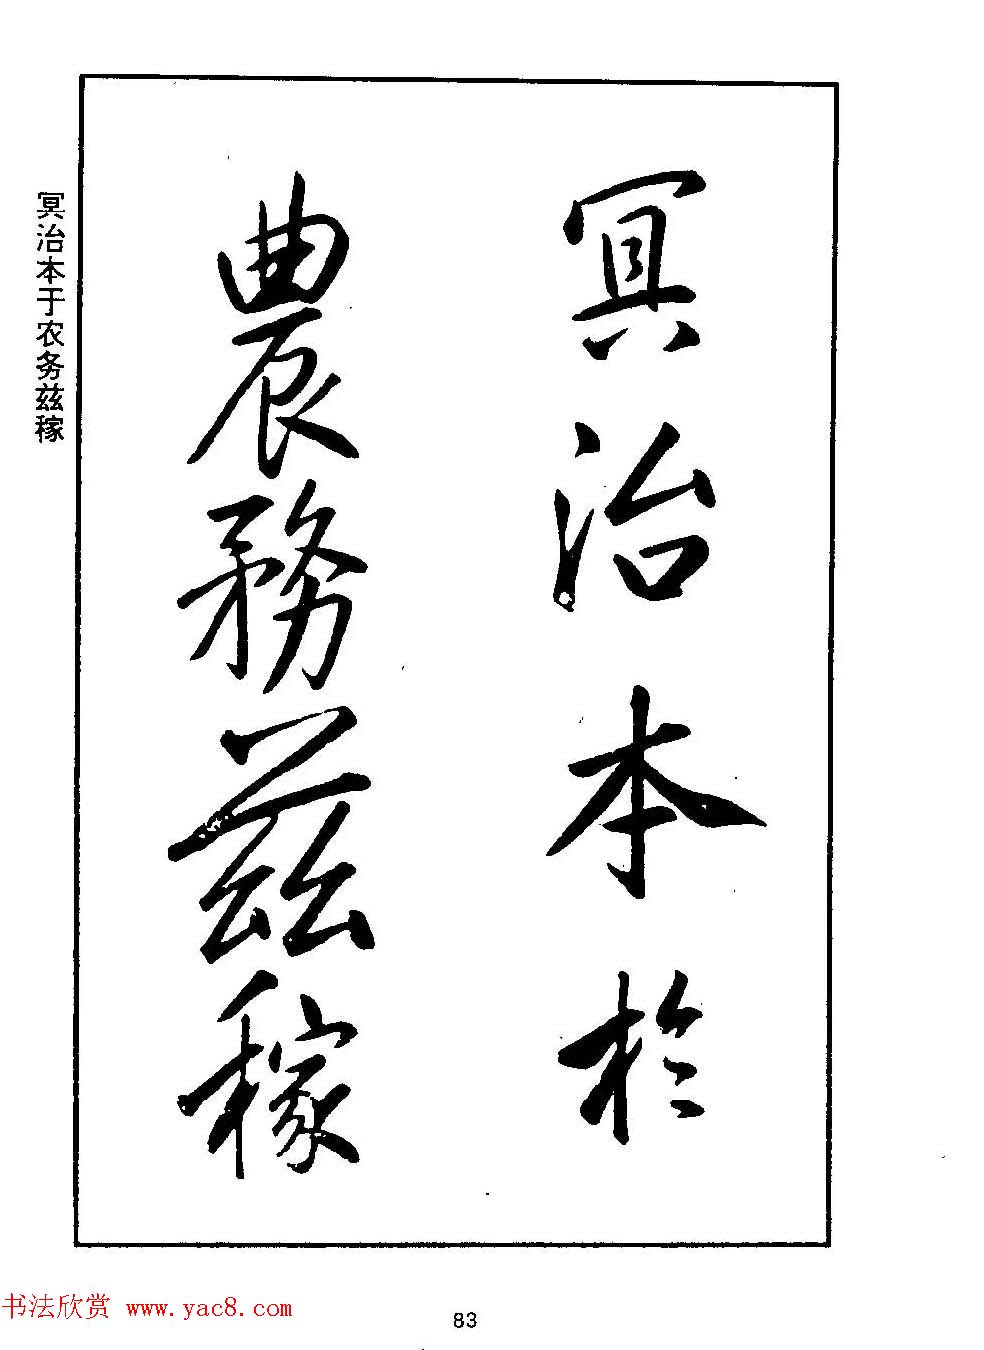 冥治本於
農務茲稼
冥治本于农务兹稼
书法欣赏 www.yac8.com
83